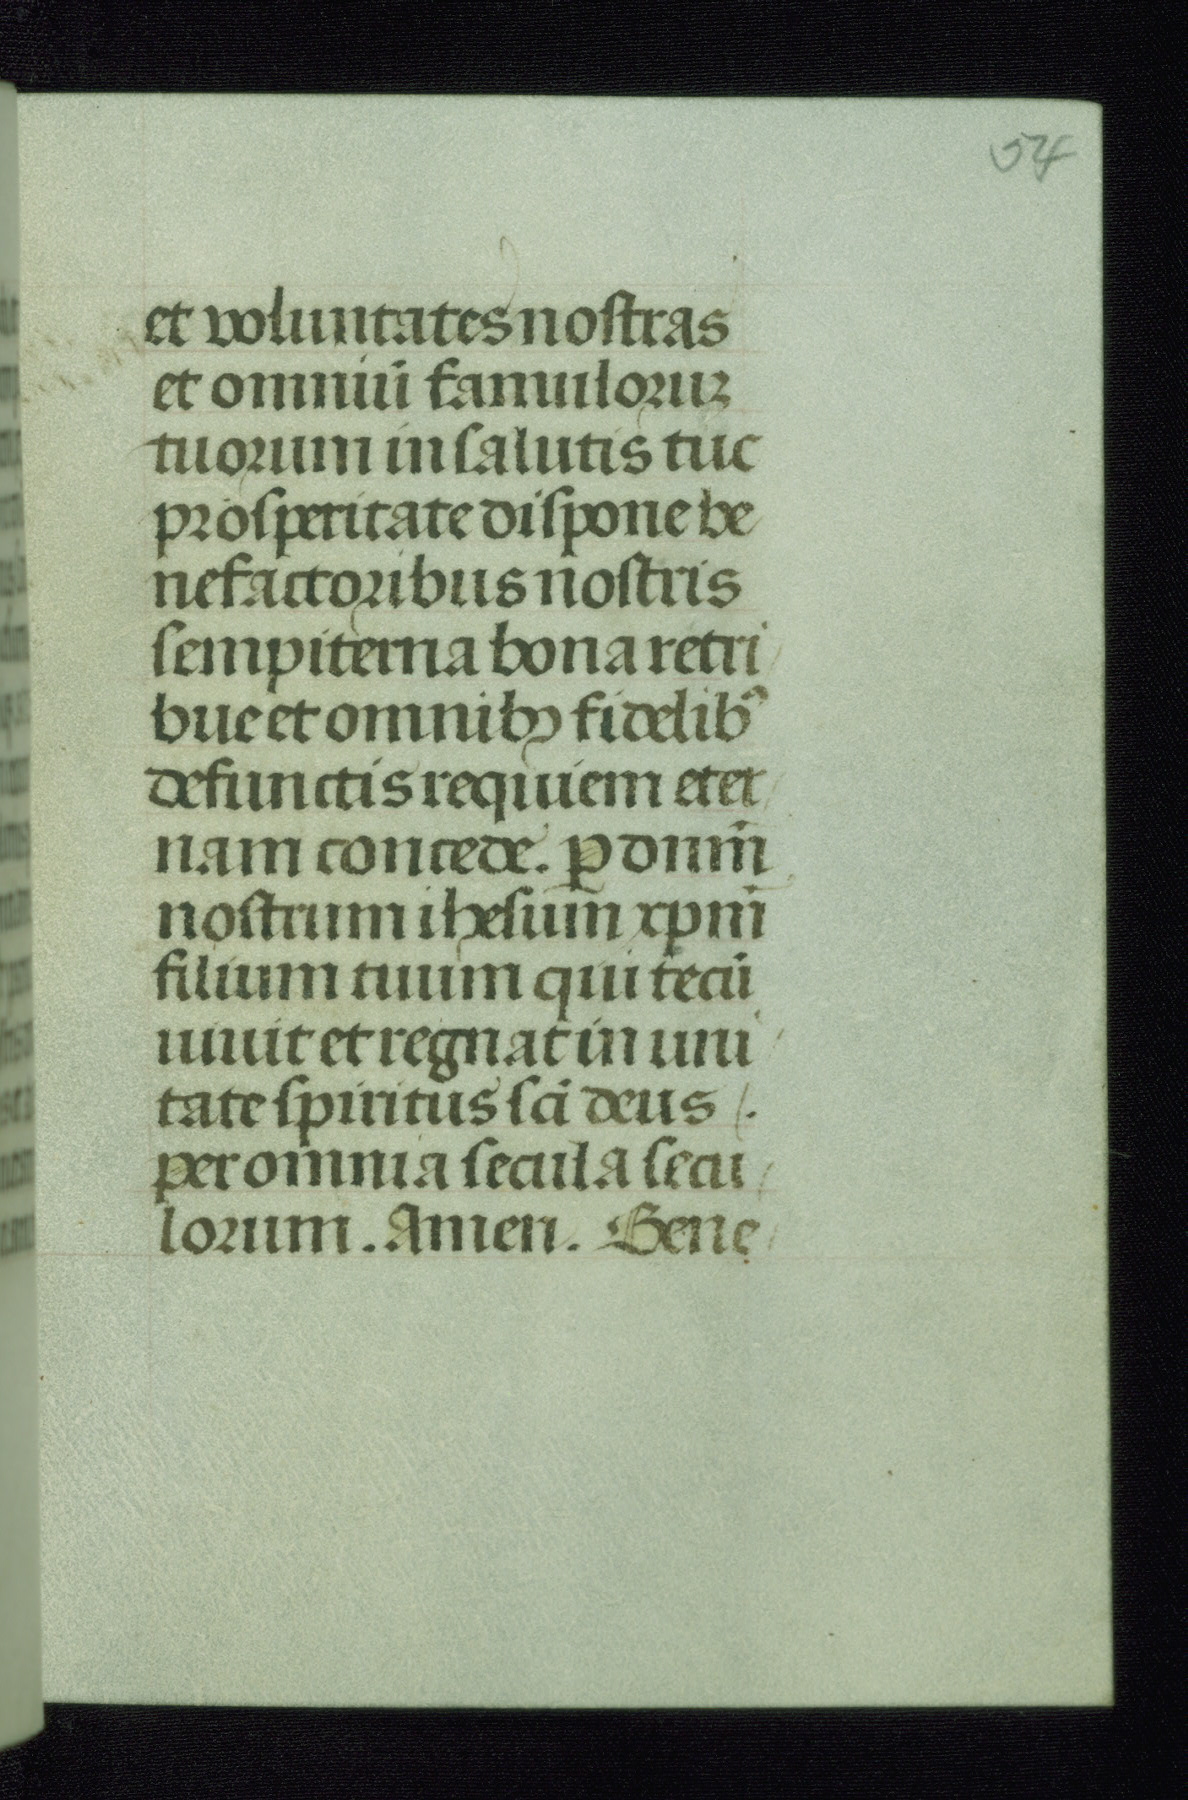 54
et voluntates nostras
et omniū famulorum
tuorum in salutis tue
prosperitate dispone be
nefactoribus nostris
sempiterna bona retri
bue et omnibꝰ fidelibꝰ
defunctis requiem eter
nam concede. ꝑ dnm̄
nostrum ihesum xp̄m
filium tuum qui tecū
uiuit et regnat in uni
tate spiritus sc̄i deus
per omnia secula secu
lorum. Amen. Bene